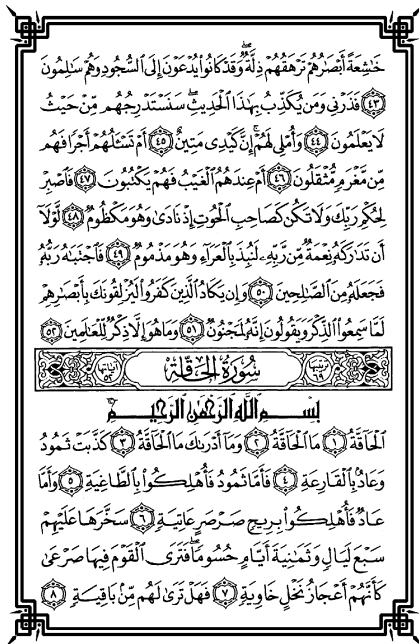 خَٰشِعَةً أَبْصَٰرُهُمْ تَرْهَقُهُمْ ذِلَّةٌ ۖ وَقَدْ كَانُوا۟ يُدْعَوْنَ إِلَى ٱلسُّجُودِ وَهُمْ سَٰلِمُونَ
﴿٤٣﴾ فَذَرْنِى وَمَن يُكَذِّبُ بِهَٰذَا ٱلْحَدِيثِ ۖ سَنَسْتَدْرِجُهُم مِّنْ حَيْثُ
لَا يَعْلَمُونَ ﴿٤٤﴾ وَأُمْلِى لَهُمْ ۚ إِنَّ كَيْدِى مَتِينٌ ﴿٤٥﴾ أَمْ تَسْـَٔلُهُمْ أَجْرًا فَهُم
مِّن مَّغْرَمٍ مُّثْقَلُونَ ﴿٤٦﴾ أَمْ عِندَهُمُ ٱلْغَيْبُ فَهُمْ يَكْتُبُونَ ﴿٤٧﴾ فَٱصْبِرْ
لِحُكْمِ رَبِّكَ وَلَا تَكُن كَصَاحِبِ ٱلْحُوتِ إِذْ نَادَىٰ وَهُوَ مَكْظُومٌ ﴿٤٨﴾ لَّوْلَآ
أَن تَدَٰرَكَهُۥ نِعْمَةٌ مِّن رَّبِّهِۦ لَنُبِذَ بِٱلْعَرَآءِ وَهُوَ مَذْمُومٌ ﴿٤٩﴾ فَٱجْتَبَٰهُ رَبُّهُۥ
فَجَعَلَهُۥ مِنَ ٱلصَّٰلِحِينَ ﴿٥٠﴾ وَإِن يَكَادُ ٱلَّذِينَ كَفَرُوا۟ لَيُزْلِقُونَكَ بِأَبْصَٰرِهِمْ
لَمَّا سَمِعُوا۟ ٱلذِّكْرَ وَيَقُولُونَ إِنَّهُۥ لَمَجْنُونٌ ﴿٥١﴾ وَمَا هُوَ إِلَّا ذِكْرٌ لِّلْعَٰلَمِينَ ﴿٥٢﴾
ترتيبها ٦٩ سُورَةُ الحَاقَّةِ آياتها ٥٢
بِسْمِ ٱللَّهِ ٱلرَّحْمَٰنِ ٱلرَّحِيمِ
ٱلْحَآقَّةُ ﴿١﴾ مَا ٱلْحَآقَّةُ ﴿٢﴾ وَمَآ أَدْرَىٰكَ مَا ٱلْحَآقَّةُ ﴿٣﴾ كَذَّبَتْ ثَمُودُ
وَعَادٌۢ بِٱلْقَارِعَةِ ﴿٤﴾ فَأَمَّا ثَمُودُ فَأُهْلِكُوا۟ بِٱلطَّاغِيَةِ ﴿٥﴾ وَأَمَّا
عَادٌ فَأُهْلِكُوا۟ بِرِيحٍ صَرْصَرٍ عَاتِيَةٍ ﴿٦﴾ سَخَّرَهَا عَلَيْهِمْ
سَبْعَ لَيَالٍ وَثَمَٰنِيَةَ أَيَّامٍ حُسُومًا ۖ فَتَرَى ٱلْقَوْمَ فِيهَا صَرْعَىٰ
كَأَنَّهُمْ أَعْجَازُ نَخْلٍ خَاوِيَةٍ ﴿٧﴾ فَهَلْ تَرَىٰ لَهُم مِّنۢ بَاقِيَةٍ ﴿٨﴾